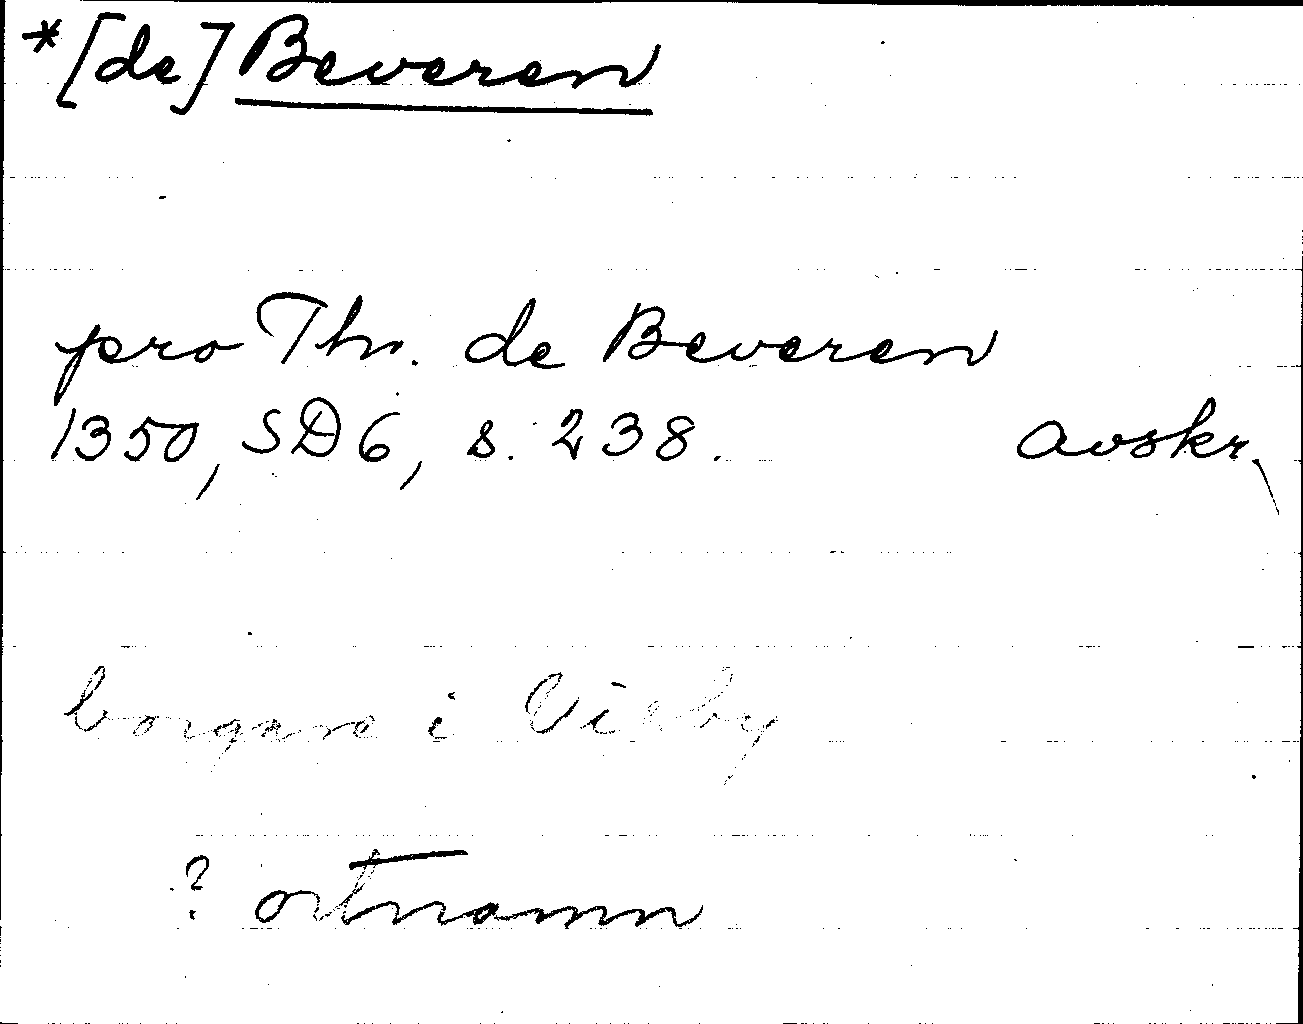 *[de] Beveren
pro Thr. de Beveren
1350, SD6, s. 238. avskr.
borgare i Visby
? ortnamn